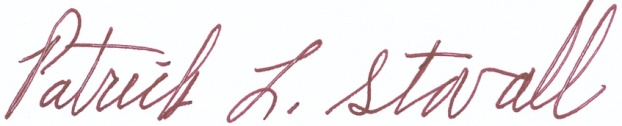 Patrick L. Stovall